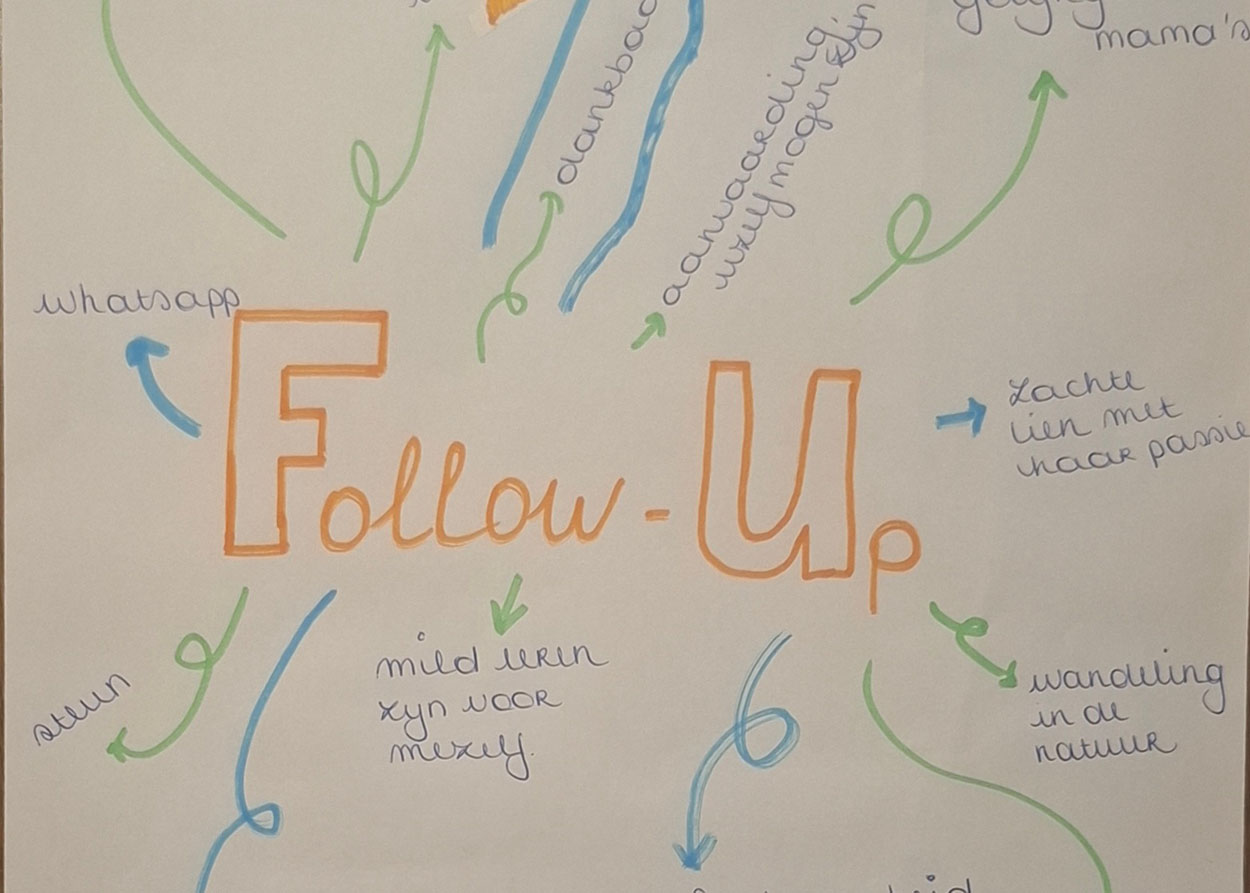 mama's
aanvaarding
mezelf mogen zijn
whatsapp
Follow-Up
zachte
lien met
haar passie
steun
mild leren
zijn voor
mezelf.
wandeling
in de
natuur